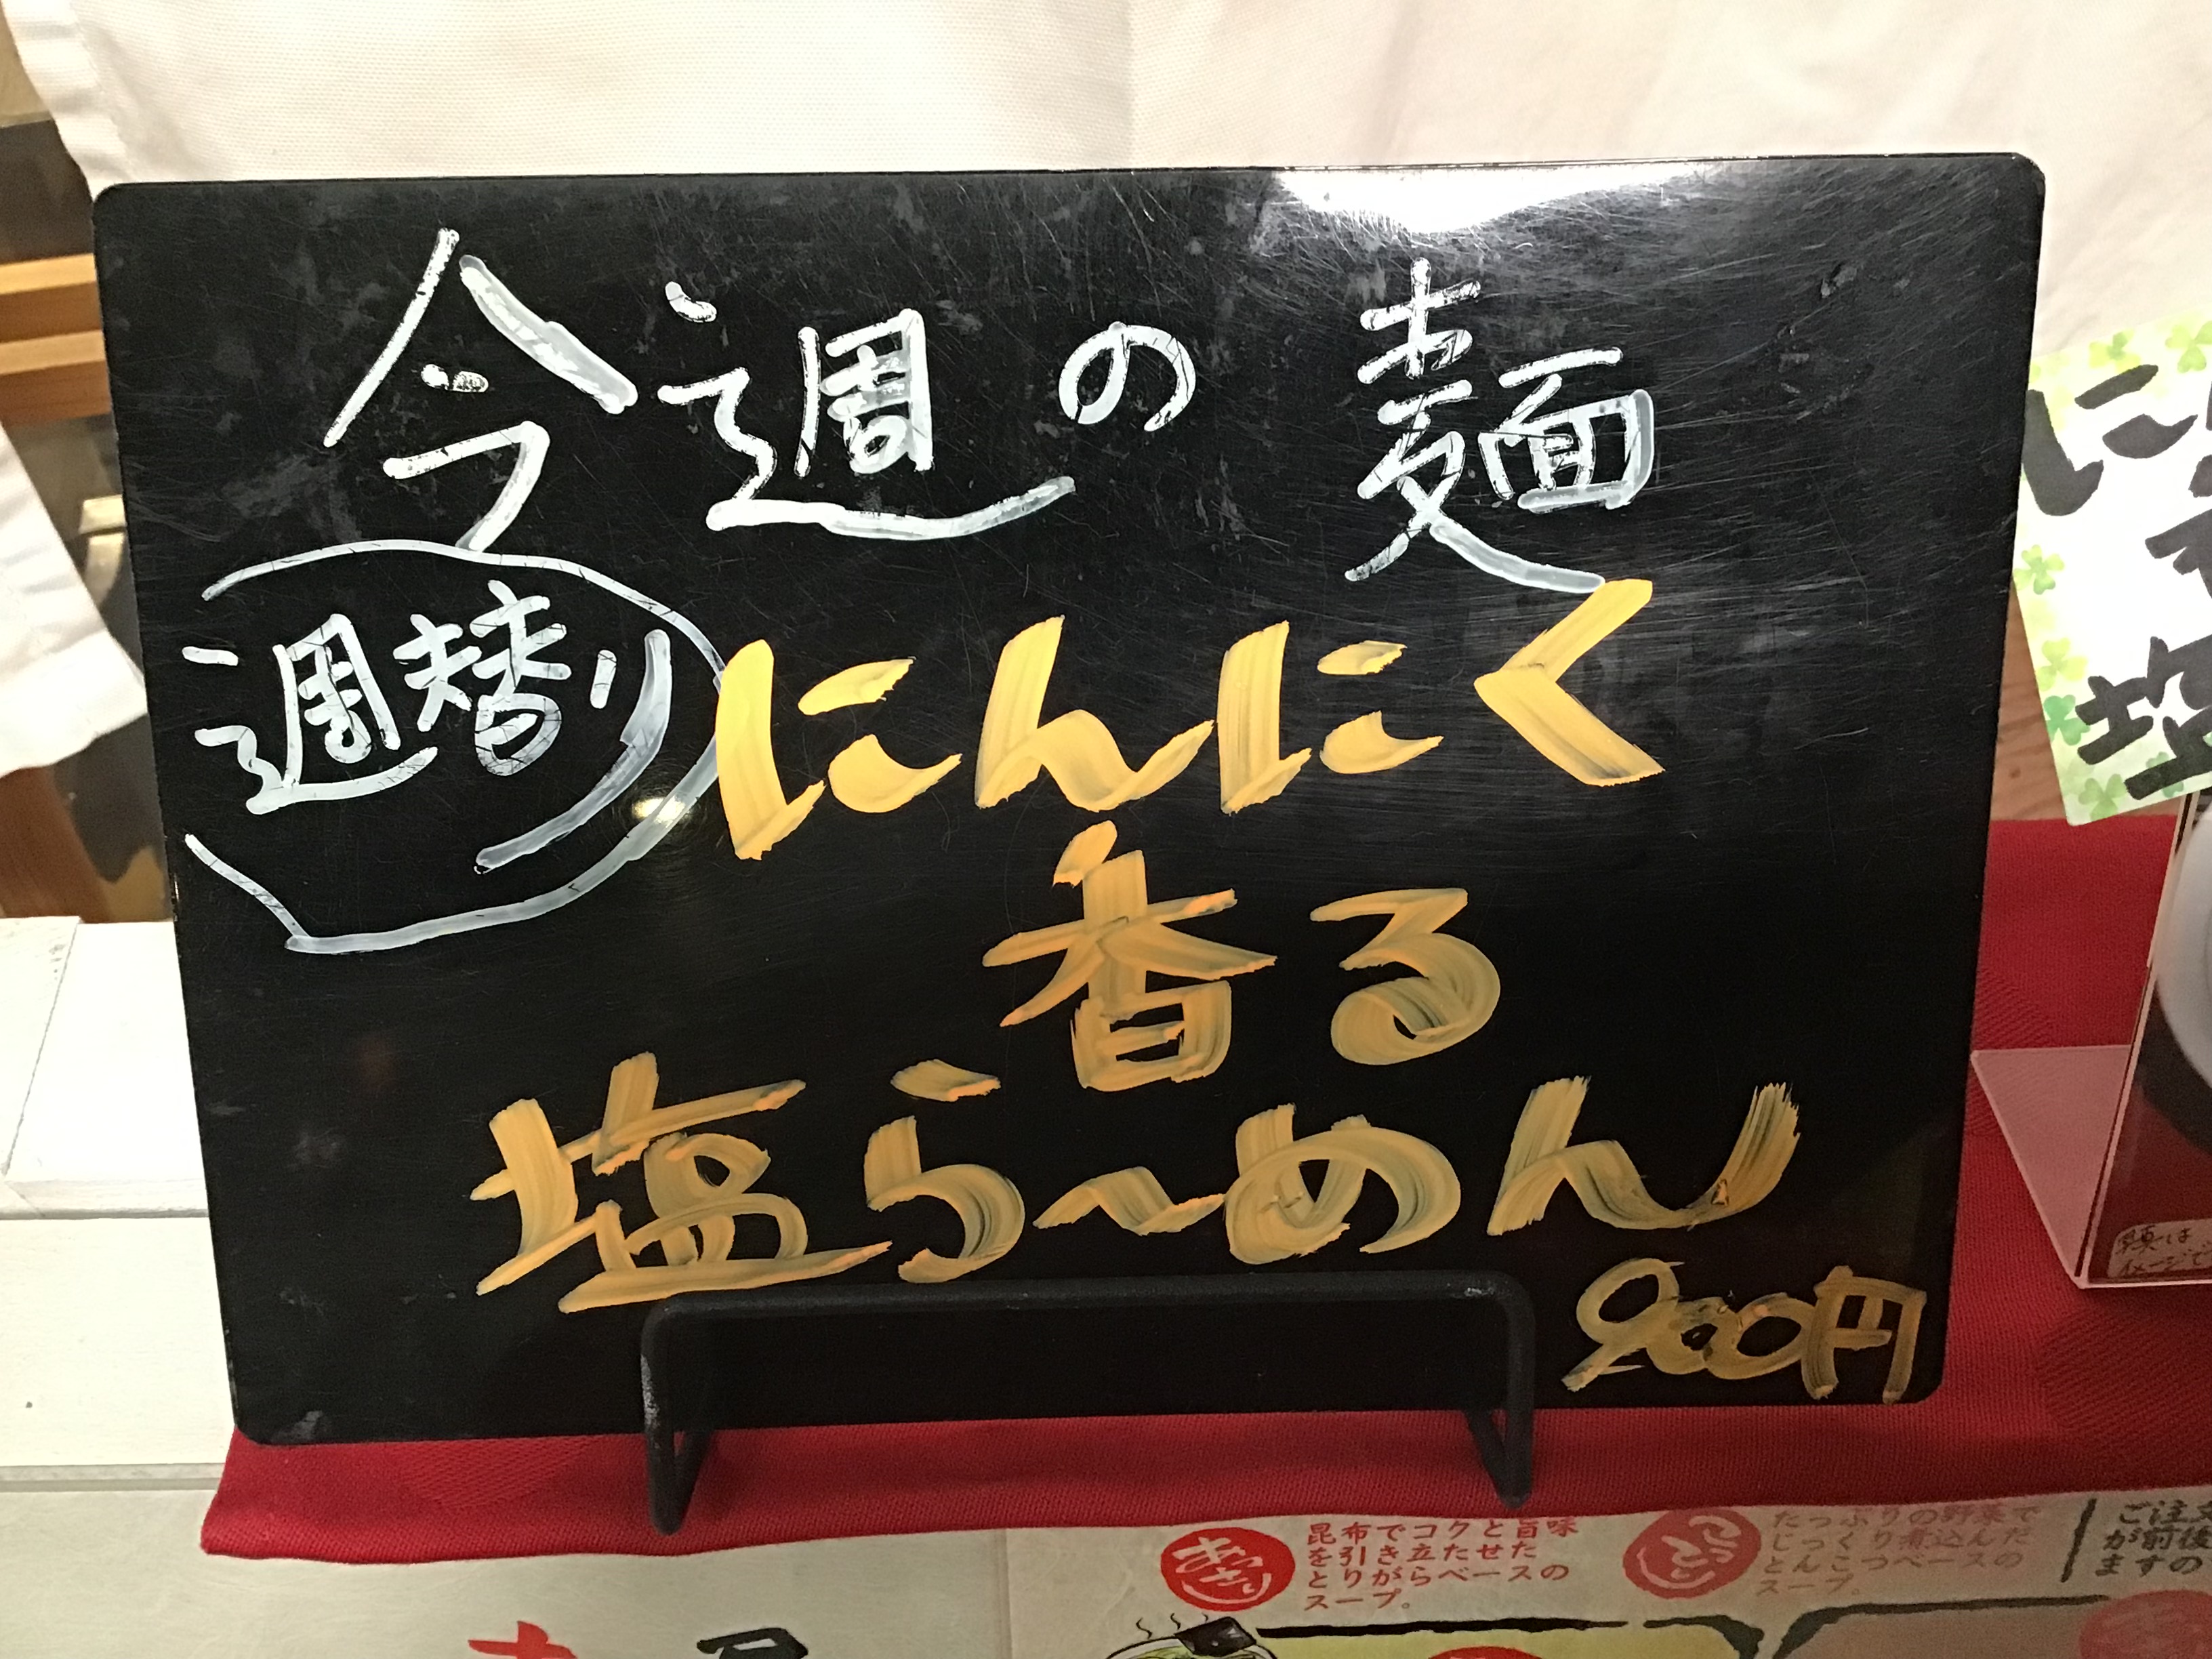 今週の麺
週替り
にんにく
香る
塩ら〜めん
900円
に
塩
写真は
イメージで
昆布でコクと旨味
を引き立たせた
とりがらベースの
スープ。
こってり
たっぷりの野菜で
じっくり煮込んだ
とんこつベースの
スープ。
ご注文
が前後
ますの